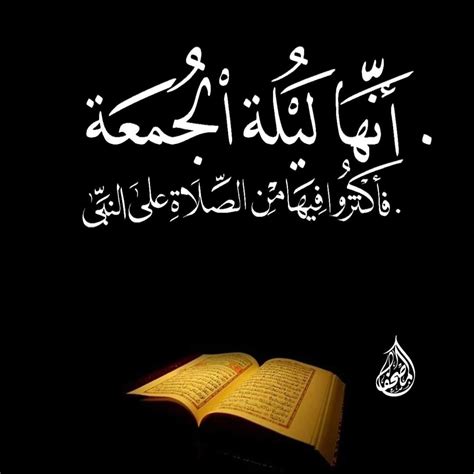 . أَنّهَا لَيْلَة اْلجُمعَة
. فَأكْثِرُوا فِيهَا مِنْ الصَّلَاةِ عَلىَ النَبىّ